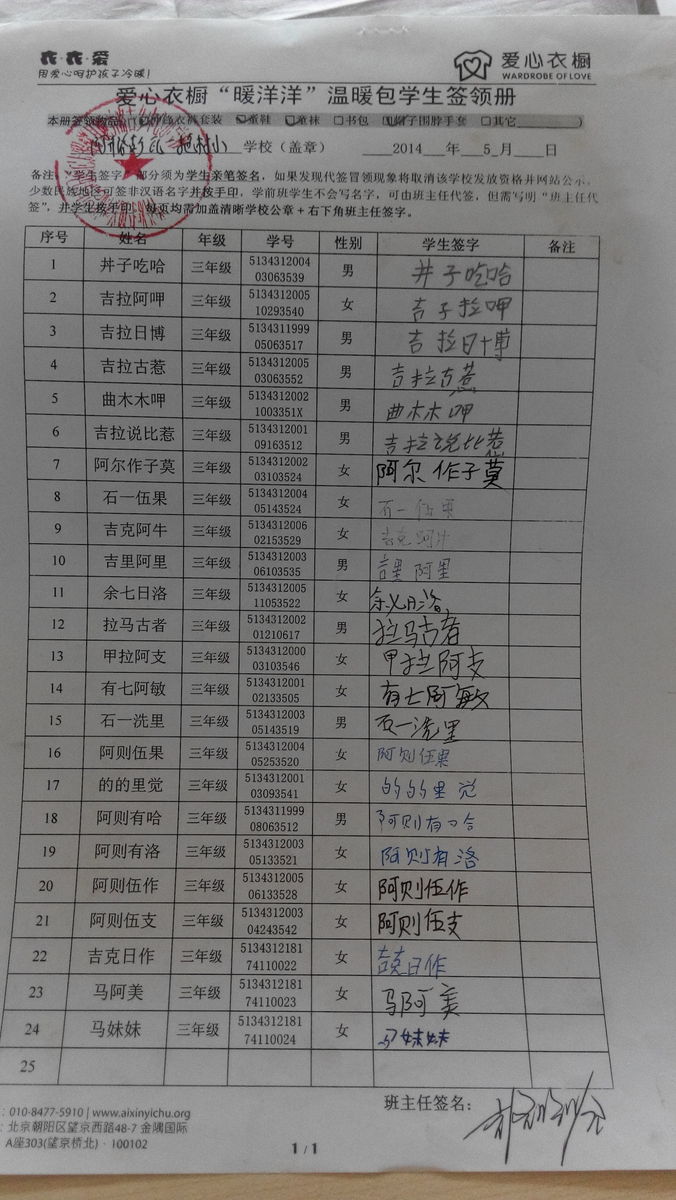 衣·衣·爱
用爱心呵护孩子冷暖!
爱心衣橱
WARDROBE OF LOVE
爱心衣橱“暖洋洋”温暖包学生签领册
本册签领物品: 冲锋衣裤套装 童鞋 童袜 □书包 帽子围脖手套 □其它
学校（盖章） 2014 年 5 月 日
备注：“学生签字”部分须为学生亲笔签名，如果发现代签冒领现象将取消该学校发放资格并网站公示。
少数民族地区可签非汉语名字并按手印，学前班学生不会写名字，可由班主任代签，但需写明“班主任代
签”，并学生按手印。每页均需加盖清晰学校公章+右下角班主任签字。
序号 姓名 年级 学号 性别 学生签字 备注
1 丼子吃哈 三年级 5134312004 03063539 男 丼子吃哈
2 吉拉阿呷 三年级 5134312005 10293540 女 吉子拉呷
3 吉拉日博 三年级 5134311999 05063517 男 吉拉日博
4 吉拉古惹 三年级 5134312005 03063552 男 吉拉古惹
5 曲木木呷 三年级 5134312002 1003351X 男 曲木木呷
6 吉拉说比惹 三年级 5134312001 09163512 男 吉拉说比惹
7 阿尔作子莫 三年级 5134312002 03103524 女 阿尔作子莫
8 石一伍果 三年级 5134312004 05143524 女 石一伍果
9 吉克阿牛 三年级 5134312006 02153529 女 吉克阿牛
10 吉里阿里 三年级 5134312003 06103535 男 吉里阿里
11 余七日洛 三年级 5134312005 11053522 女 余七日洛
12 拉马古者 三年级 5134312002 01210617 男 拉马古者
13 甲拉阿支 三年级 5134312000 03103546 女 甲拉阿支
14 有七阿敏 三年级 5134312001 02133505 女 有七阿敏
15 石一洗里 三年级 5134312003 05143519 男 石一洗里
16 阿则伍果 三年级 5134312004 05253520 女 阿则伍果
17 的的里觉 三年级 5134312001 03093541 女 的的里觉
18 阿则有哈 三年级 5134311999 08063512 男 阿则有哈
19 阿则有洛 三年级 5134312003 05133521 女 阿则有洛
20 阿则伍作 三年级 5134312005 06133528 女 阿则伍作
21 阿则伍支 三年级 5134312003 04243542 女 阿则伍支
22 吉克日作 三年级 5134312181 74110022 女 吉克日作
23 马阿美 三年级 5134312181 74110023 女 马阿美
24 马妹妹 三年级 5134312181 74110024 女 马妹妹
25
班主任签名：
: 010-8477-5910 | www.aixinyichu.org
: 北京朝阳区望京西路48-7 金隅国际
A座303(望京桥北) · 100102
1 / 1